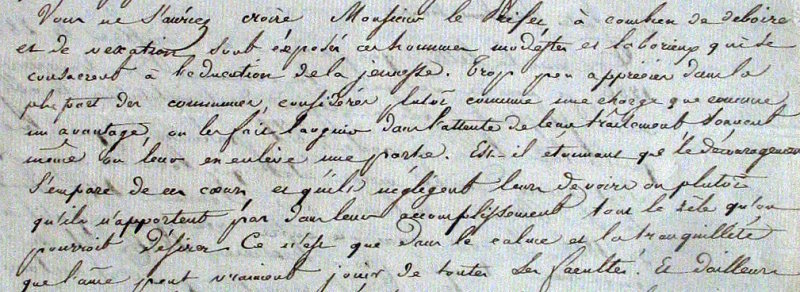 Vous ne sauriez croire Monsieur le Préfet, à combien de deboire
et de vexation sont exposés ces hommes modestes et laborieux qui se
consacrent à l'education de la jeunesse. Trop peu appréciés dans la
plupart des communes, considérés plutôt comme une charge que comme
un avantage, on les fait languir dans l'attente de leur traitement souvent
même on leur en enlève une partie. Est-il etonnant que le découragement
s'empare de ces cœurs et qu'ils négligent leurs devoirs ou plutôt
qu'ils n'apportent pas dans leur accomplissement tout le zèle qu'on
pourroit désirer. Ce n'est que dans le calme et la tranquillité
que l'âme peut vraiment jouir de toutes ses facultés. Et d'ailleurs